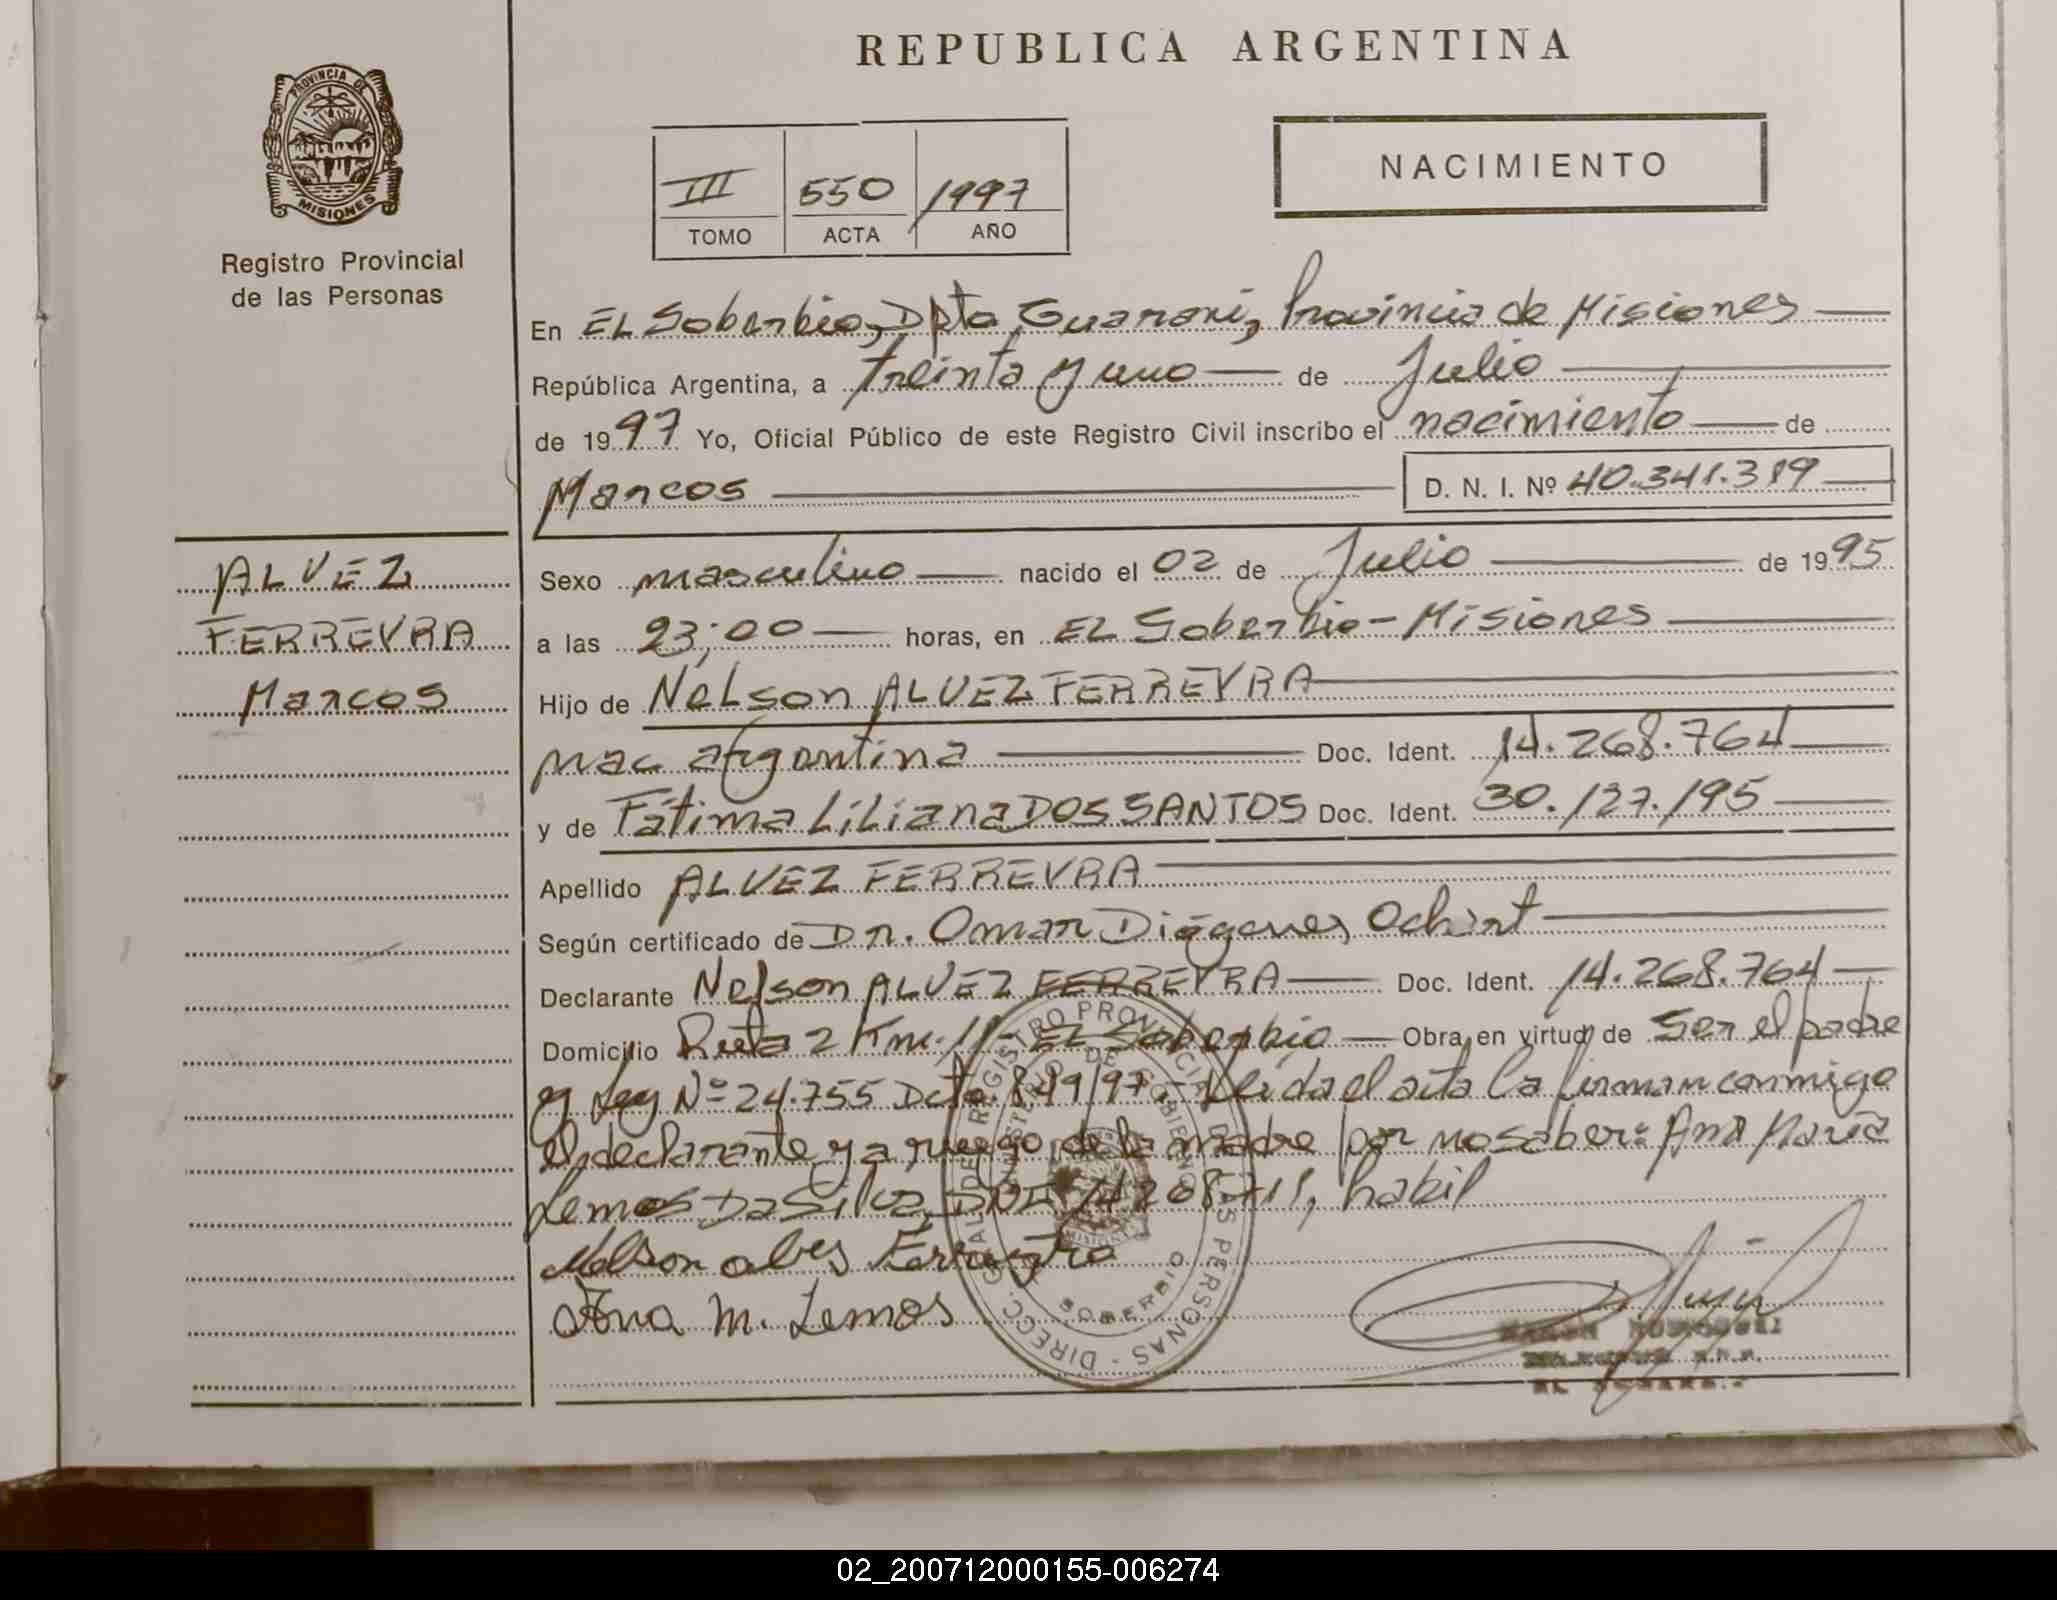 REPUBLICA ARGENTINA
PROVINCIA DE
MISIONES
Registro Provincial
de las Personas
III 550 1997
TOMO ACTA AÑO
NACIMIENTO
En EL Soberbio, Dpto Guaraní, Provincia de Misiones
República Argentina, a treinta y uno de Julio
de 1997 Yo, Oficial Público de este Registro Civil inscribo el nacimiento de
Marcos D. N. I. Nº 40.341.319
ALVEZ
FERREYRA
Marcos
Sexo masculino nacido el 02 de Julio de 1995
a las 23:00 horas, en EL Soberbio - Misiones
Hijo de Nelson ALVEZ FERREYRA
nac argentina Doc. Ident. 14.268.764
y de Fátima Liliana DOS SANTOS Doc. Ident. 30.127.195
Apellido ALVEZ FERREYRA
Según certificado de Dr. Omar Diógenes
Declarante Nelson ALVEZ FERREYRA Doc. Ident. 14.268.764
Domicilio Ruta 2 Km. 11 - EL Soberbio Obra en virtud de ser el padre
y Ley Nº 24.755 Dcto. 849/97.- Leida el acta la firman conmigo
el declarante y a ruego de la madre por no saber: Ana María
Lemos Da Silva, DNI 14268711, habil
Nelson alves
Ana M. Lemos
DIRECC. GRAL DE REGISTRO PROVINCIAL DE LAS PERSONAS
MINISTERIO DE GOBIERNO
SOBERBIO
02_200712000155-006274